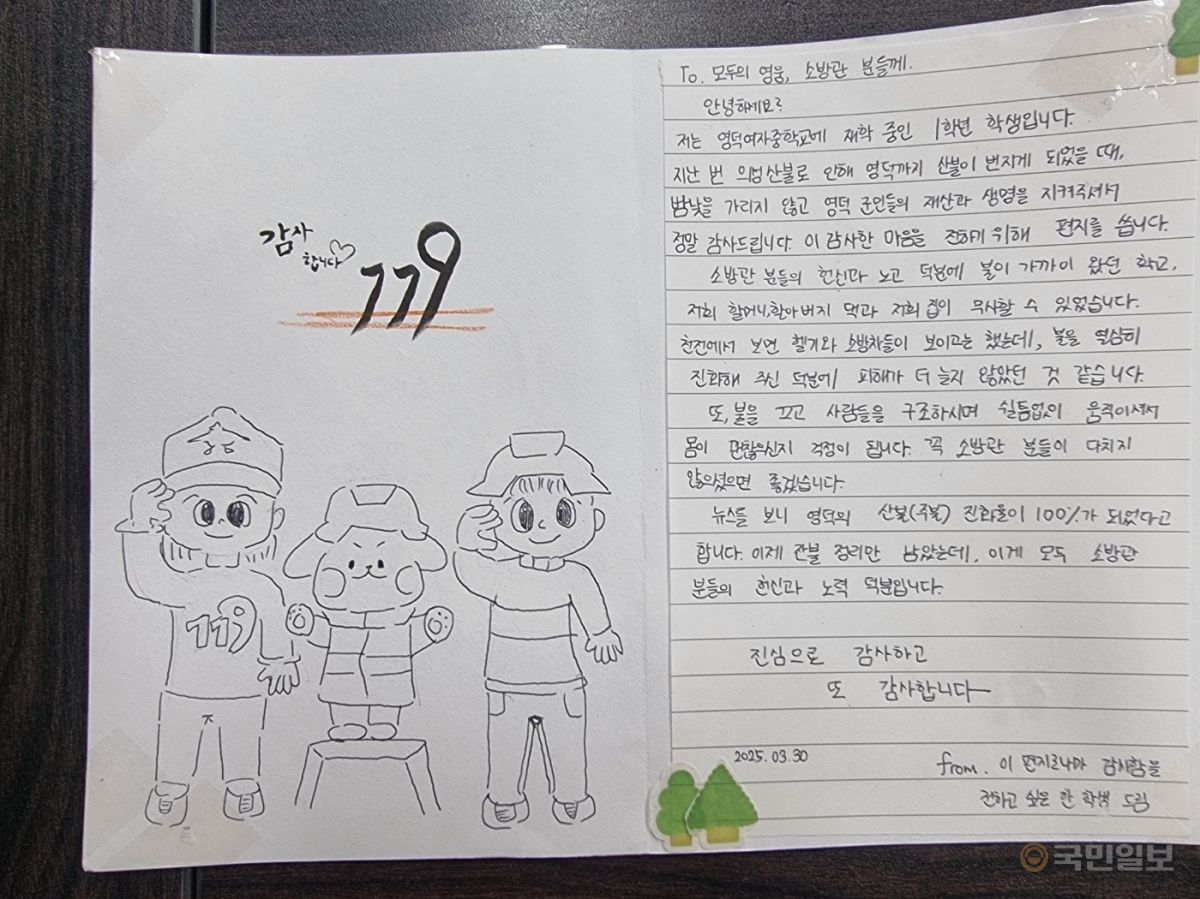 감사
합니다
119
강남
119
To. 모두의 영웅, 소방관 분들께.
안녕하세요?
저는 영덕여자중학교에 재학 중인 1학년 학생입니다.
지난 번 의성산불로 인해 영덕까지 산불이 번지게 되었을 때,
밤낮을 가리지 않고 영덕 군민들의 재산과 생명을 지켜주셔서
정말 감사드립니다. 이 감사한 마음을 전하기 위해 편지를 씁니다.
소방관 분들의 헌신과 노고 덕분에 불이 가까이 왔던 학교,
저희 할머니,할아버지 댁과 저희 집이 무사할 수 있었습니다.
천전에서 보면 헬기와 소방차들이 보이고는 했는데, 불을 열심히
진화해 주신 덕분에 피해가 더 늘지 않았던 것 같습니다.
또, 불을 끄고 사람들을 구조하시며 쉴틈없이 움직이셔서
몸이 괜찮으신지 걱정이 됩니다. 꼭 소방관 분들이 다치지
않으셨으면 좋겠습니다.
뉴스를 보니 영덕의 산불(주불) 진화율이 100%가 되었다고
합니다. 이제 잔불 정리만 남았는데, 이게 모두 소방관
분들의 헌신과 노력 덕분입니다.
진심으로 감사하고
또 감사합니다
2025.03.30
from. 이 편지로나마 감사함을
전하고 싶은 한 학생 드림
국민일보